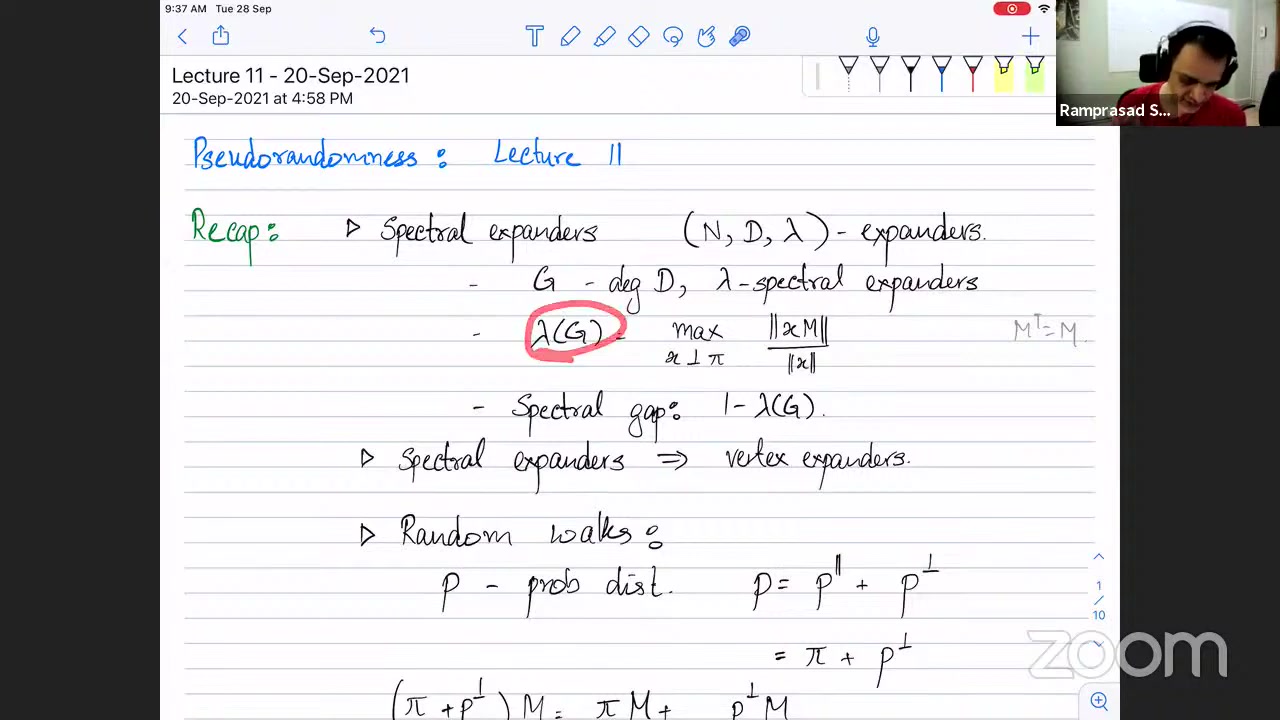 9:37 AM Tue 28 Sep
Lecture 11 - 20-Sep-2021
20-Sep-2021 at 4:58 PM
Ramprasad S...
Pseudorandomness: Lecture 11
Recap: ▷ Spectral expanders (N, D, λ) - expanders.
- G - deg D, λ-spectral expanders
- λ(G) = max x⊥π ‖xM‖/‖x‖ Mᵀ=M.
- Spectral gap: 1-λ(G).
▷ Spectral expanders ⇒ vertex expanders.
▷ Random walks:
p - prob dist. p = p^∥ + p^⊥
= π + p^⊥
(π + p^⊥) M = πM + p^⊥M
1
/
10
zoom